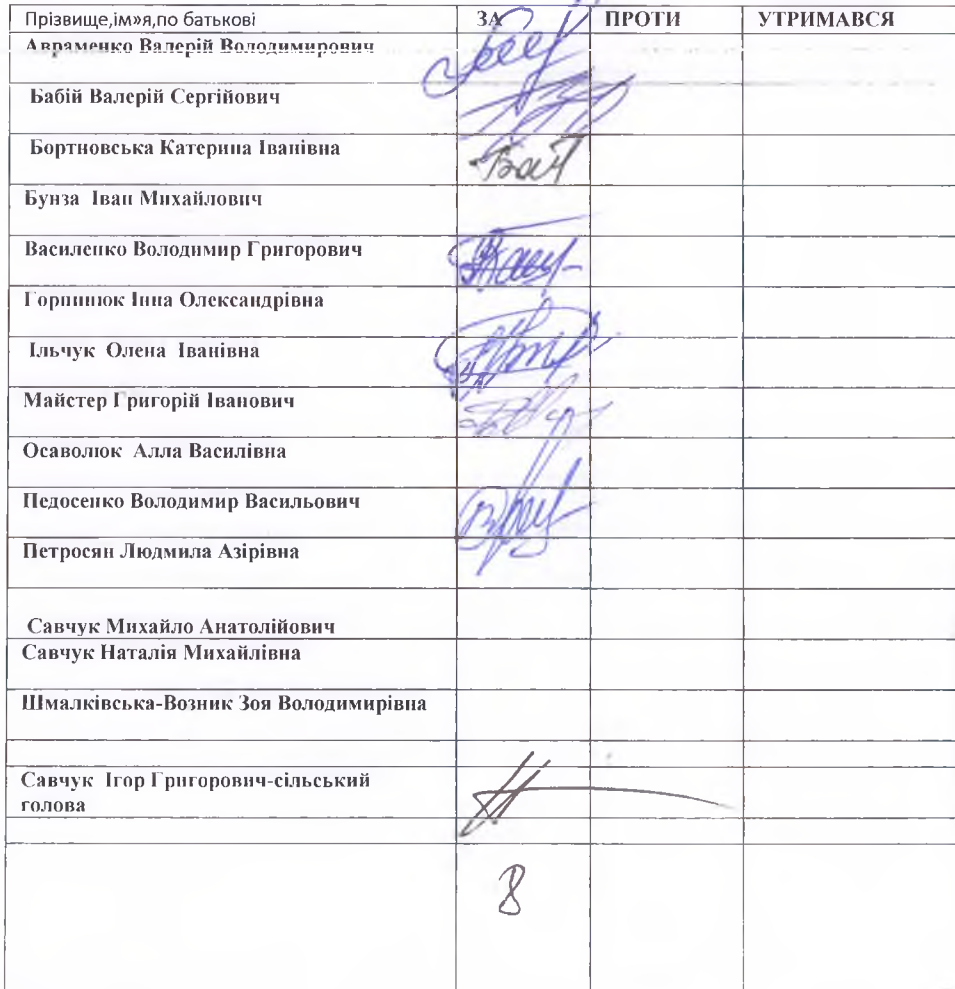 Прізвище,ім»я,по батькові ЗА ПРОТИ УТРИМАВСЯ
Авраменко Валерій Володимирович
Бабій Валерій Сергійович
Бортновська Катерина Іванівна
Бунза Іван Михайлович
Василенко Володимир Григорович
Горпинюк Інна Олександрівна
Ільчук Олена Іванівна
Майстер Григорій Іванович
Осаволюк Алла Василівна
Педосенко Володимир Васильович
Петросян Людмила Азірівна
Савчук Михайло Анатолійович
Савчук Наталія Михайлівна
Шмалківська-Возник Зоя Володимирівна
Савчук Ігор Григорович-сільський
голова
8